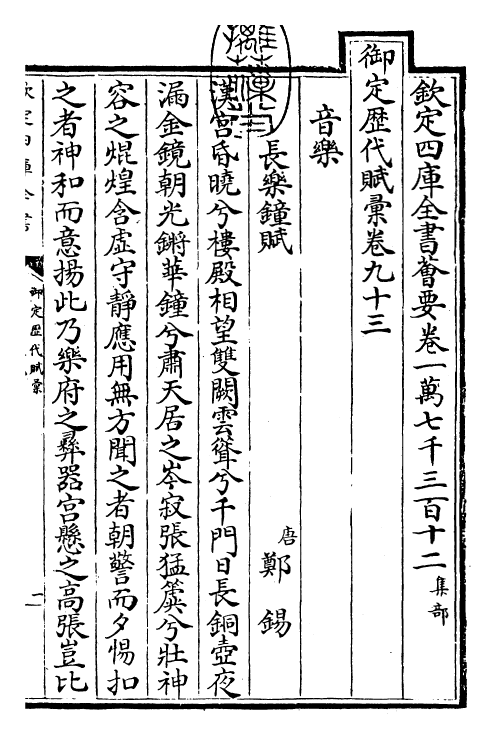 欽定四庫全書薈要卷一萬七千三百十二集部
御定歴代賦彙卷九十三
音樂
長樂鐘賦
唐鄭錫
漢宮昏曉兮樓殿相望雙闕雲聳兮千門日長銅壺夜
漏金鏡朝光鏘華鐘兮肅天居之岑寂張猛簴兮壯神
容之焜煌含虛守靜應用無方聞之者朝警而夕惕扣
之者神和而意揚此乃樂府之彞器宮懸之高張豈比
欽定四庫全書
御定歴代賦彙
一